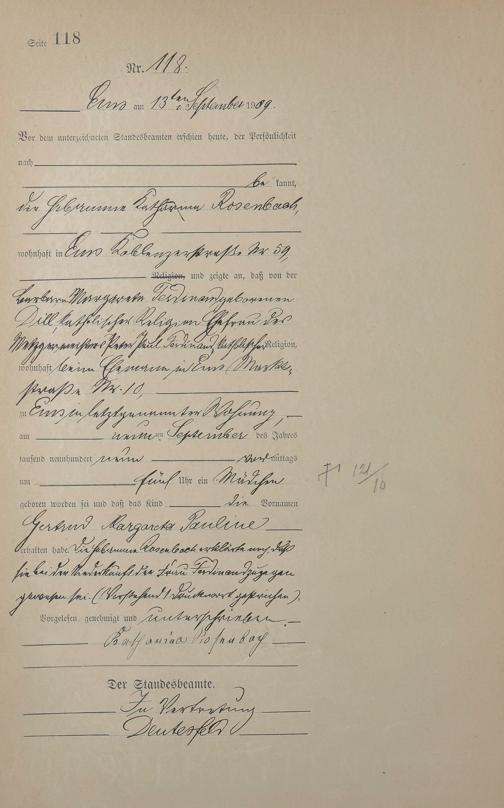 Seite 118
Nr. 118.
Ems am 13ten September 1909.
Vor dem unterzeichneten Standesbeamten erschien heute, der Persönlichkeit
nach
be kannt,
die Hebamme Katharina Rosenbach,
wohnhaft in Ems Koblenzerstraße Nr 59
Religion, und zeigte an, daß von der
Barbara Margareta Ferdinand geborenen
Dill katholischer Religion Ehefrau des
Metzgermeisters Peter Paul Ferdinand katholischer Religion,
wohnhaft beim Ehemann in Ems, Markt-
straße Nr. 10,
zu Ems, in letztgenannter Wohnung,
am neunten September des Jahres
tausend neunhundert neun vormittags
um fünf Uhr ein Mädchen
geboren worden sei und daß das Kind die Vornamen
Gertrud Margareta Pauline
erhalten habe. Die Hebamme Rosenbach erklärte noch, daß
sie bei der Niederkunft der Frau Ferdinand zugegen
gewesen sei. (Vorstehend 1 Druckwort gestrichen).
Vorgelesen, genehmigt und unterschrieben.
Katharina Rosenbach
Der Standesbeamte.
In Vertretung
121/10